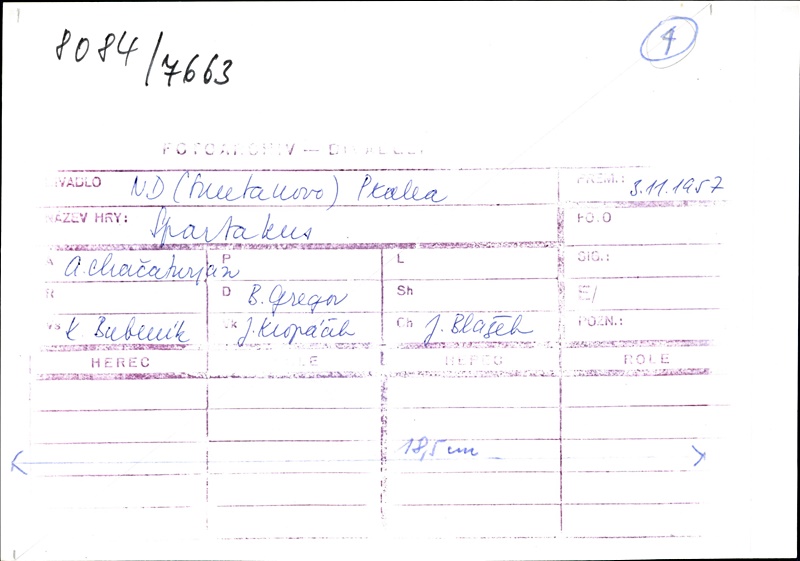 8084/7663
4
FOTOARCHIV — DIVADELN
IVADLO ND (Smetanovo) Praha PREM.: 3.11.1957
NÁZEV HRY: Spartakus FOTO
A A. Chačaturjan P L SIG.:
R D B. Gregor Sh E/
Vs K Bubeník k J. Kropáček Ch J. Blažek POZN.:
HEREC LE HEREC ROLE
18,5 cm